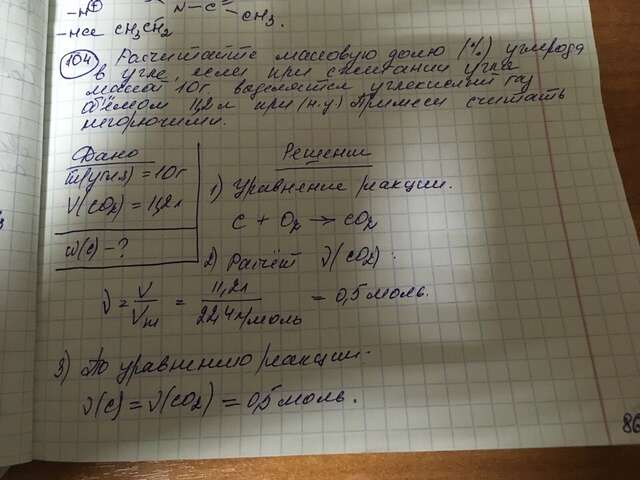 -H⁺
N - C - CH₃.
-HCl CH₃CH₂
104 Расчитайте массовую долю (%) углерода
в угле, если при сжигании угля
массой 10г. выделяется углекислый газ
объёмом 11,2 л при (н.у) Примеси считать
негорючими.
Дано
m(угля) = 10г
V(CO₂) = 11,2л
w(C) - ?
Решение
1) Уравнение реакции.
C + O₂ → CO₂
2) Расчёт ν(CO₂):
ν = V/Vm = 11,2л/22,4л/моль = 0,5 моль.
3) По уравнению реакции.
ν(C) = ν(CO₂) = 0,5 моль.
86